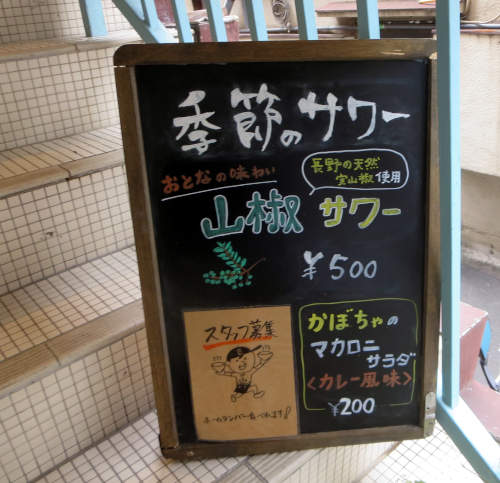 季節のサワー
おとなの味わい
長野の天然
実山椒使用
山椒サワー
¥500
スタッフ募集
ホームランバー食べれます!
かぼちゃの
マカロニ
サラダ
<カレー風味>
¥200